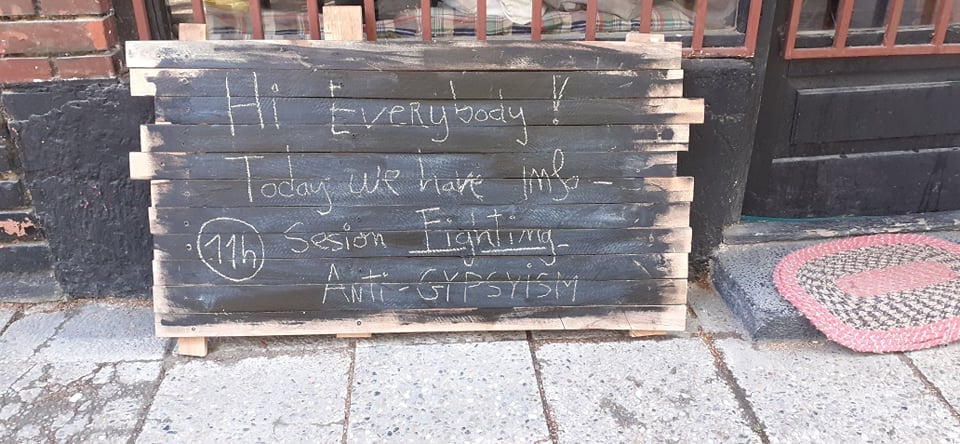 Hi Everybody!
Today we have info-
11h Sesion Fighting
Anti-GYPSYISM